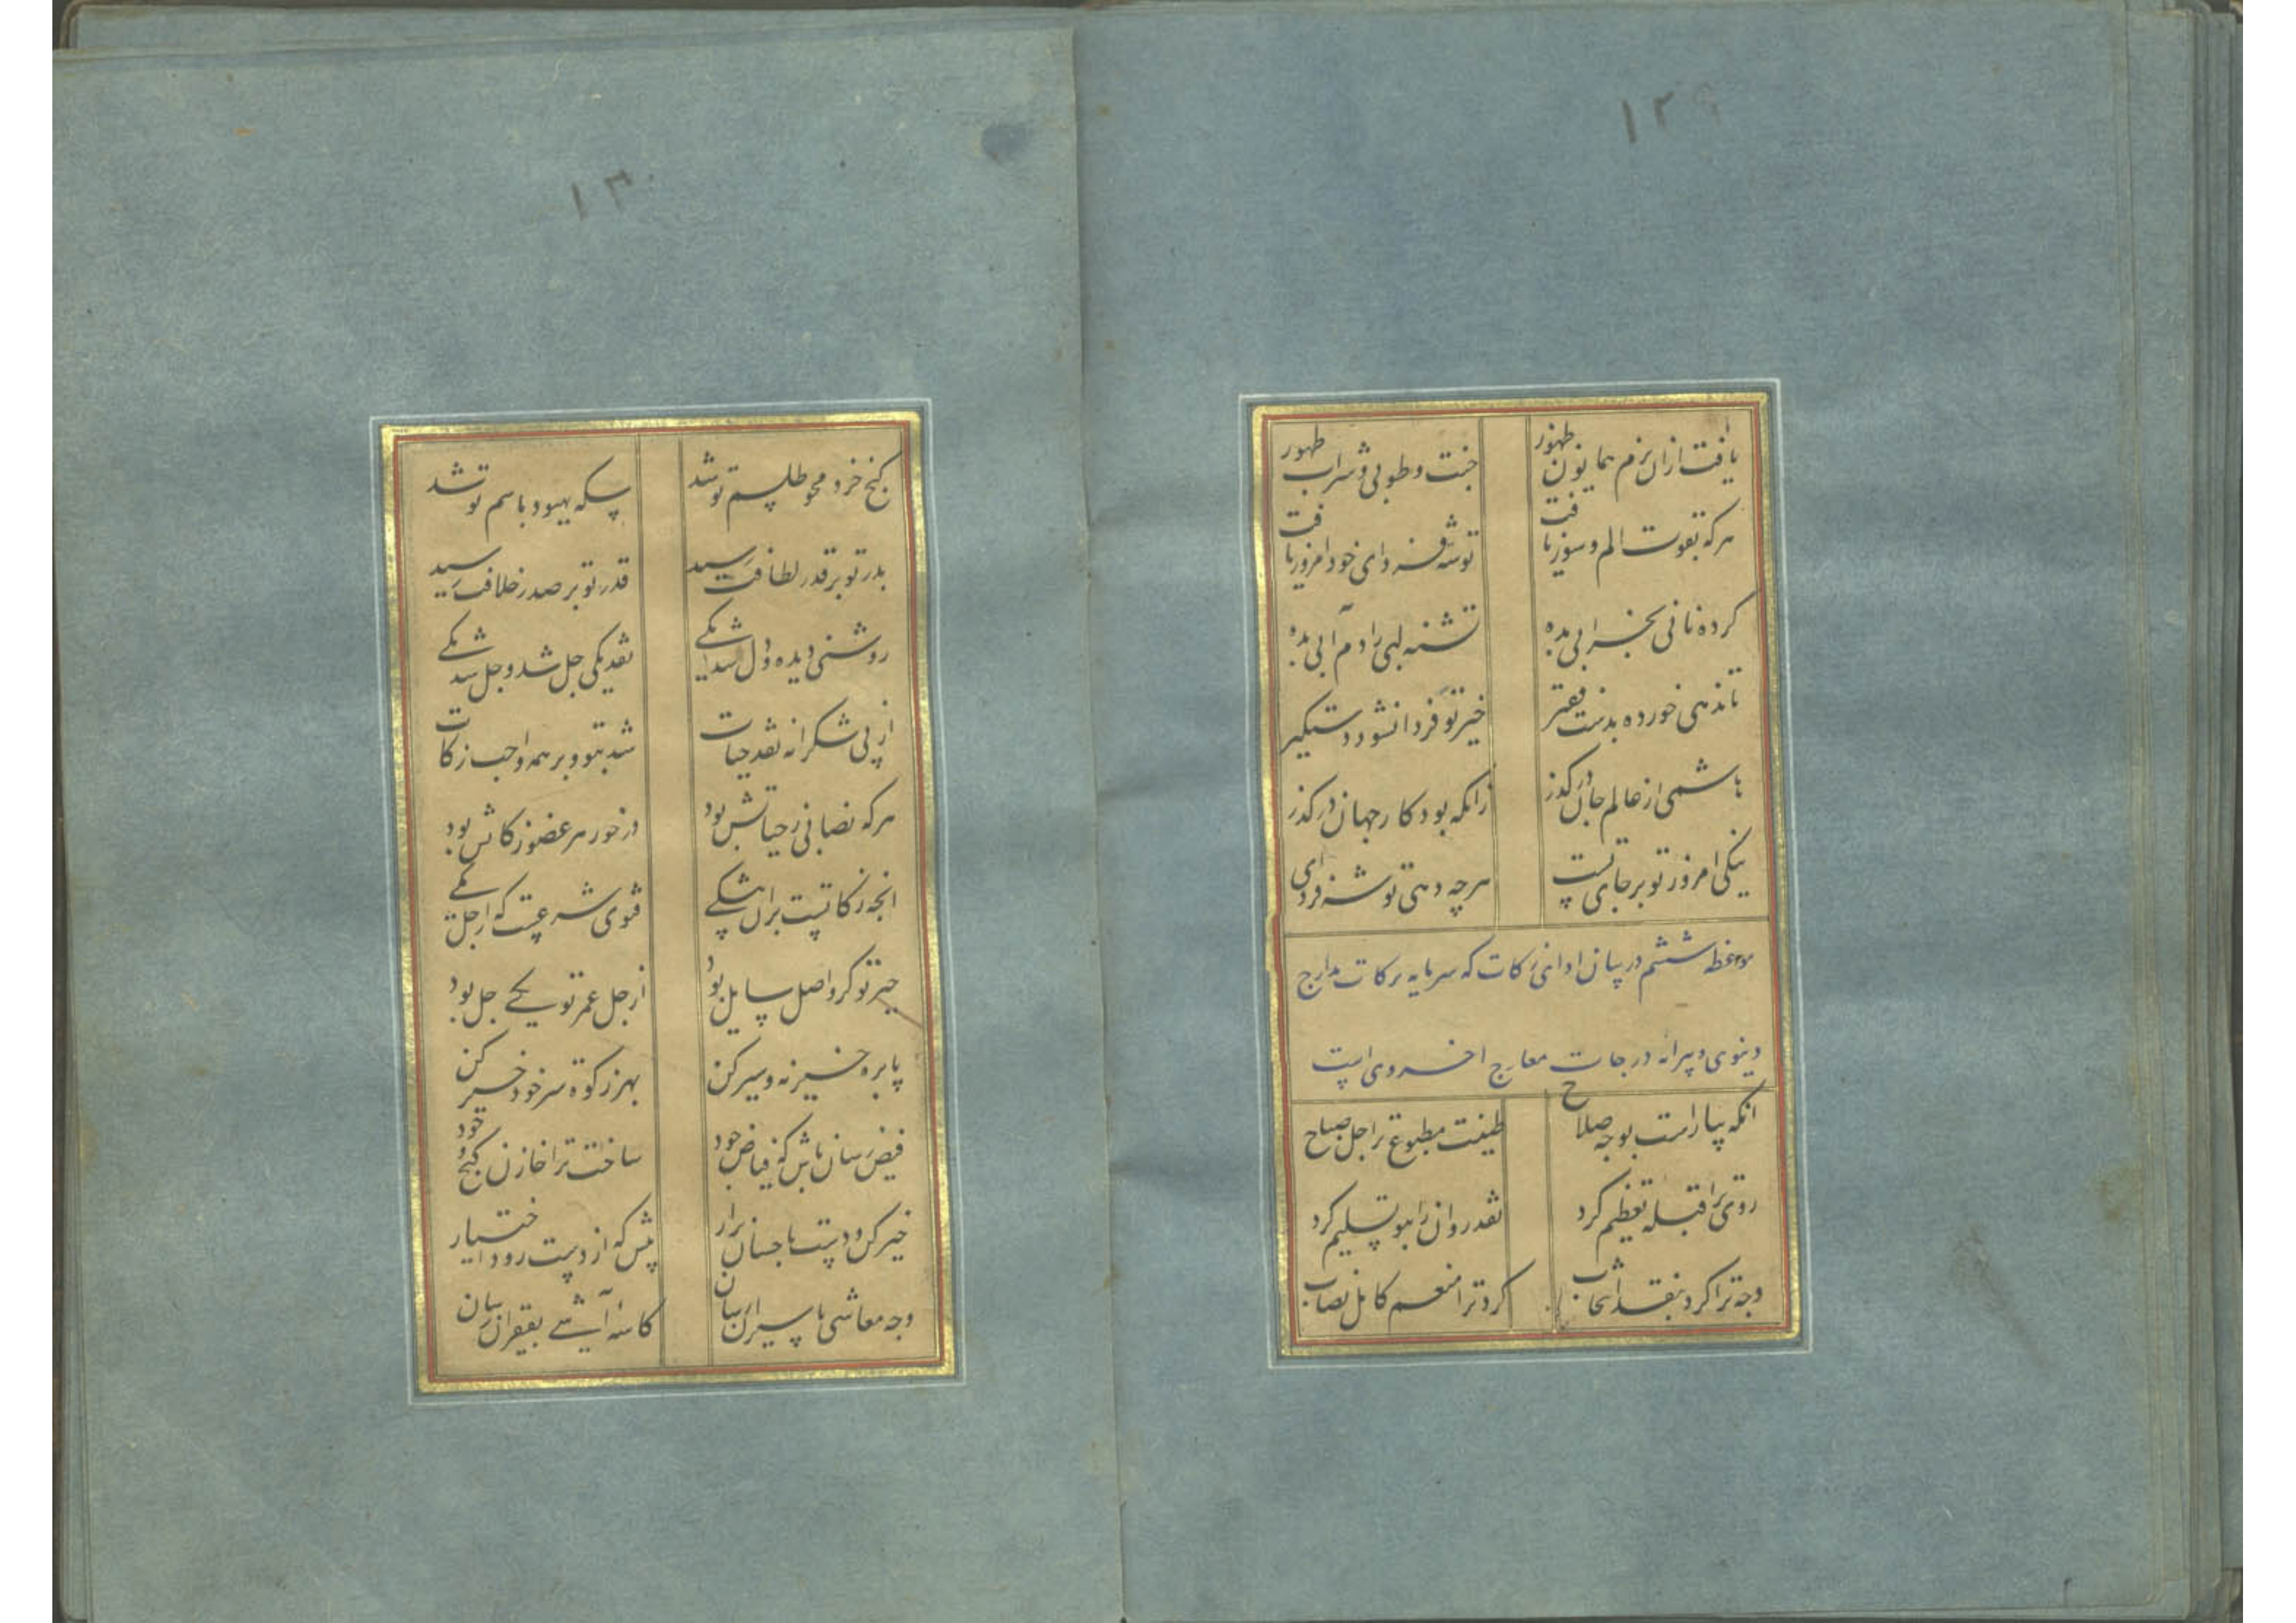 ۱۲۹
یافت ازان بزم همایون ظهور
جنت و طوبی و شراب طهور
هرکه بقوت الم و سوز یافت
توشه فردای خود امروز یافت
کرده نانی بخرابی بده
تشنه لبی را دم آبی بده
تا ندهی خورده بدست فقیر
خیر تو فردا نشود دستگیر
هاشمی از عالم جان درگذر
زانکه بود کار جهان درگذر
نیکی امروز تو برجای تست
هرچه دهی توشه فردای
موعظه ششم در بیان ادای زکات که سرمایه برکات مدارج
دنیوی و پیرایه درجات معارج اخروی است
انکه بیاراست بوجه صلاح
طینت مطبوع ترا جل صباح
روی ترا قبله تعظیم کرد
نقد روان را بتو تسلیم کرد
وجه ترا کرد بنقد
کرد ترا منعم کامل نصاب
۱۳۰
گنج خرد محو طلسم تو شد
سکه بهبود باسم تو شد
بدر تو بر قدر لطافت رسید
قدر تو بر صدر خلافت رسید
روشنی دیده و دل شد یکی
نقد یکی چل شد و چل شد یکی
از پی شکرانه نقد حیات
شد بتو و بر همه واجب زکات
هرکه نصابی ز حیاتش بود
درخور هر عضو زکاتش بود
انچه زکاتست بران بیشکی
فتوی شرعیست که از چل یکی
خیر تو گر واصل سایل بود
از چل عمر تو یکی چل بود
پا بره خیر نه و سیر کن
بهر زکوة سر خود خیر کن
فیض رسان باش که فیاض جود
ساخت ترا خازن گنج وجود
خیر کن و دست باحسان برار
پیش که از دست رود اختیار
وجه معاشی باسیران رسان
کاسه آشی بفقیران رسان